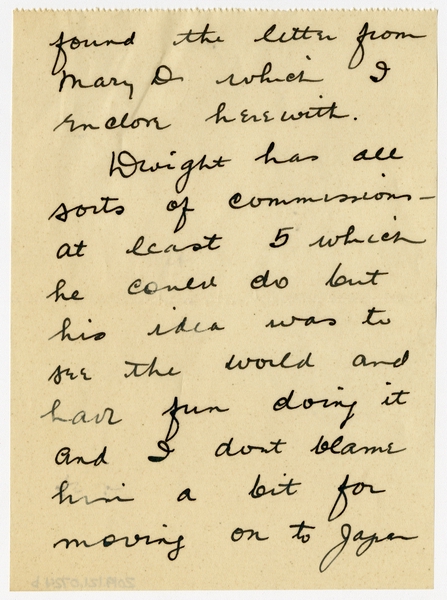 found the letter from
Mary D. which I
enclose herewith.
Dwight has all
sorts of commissions -
at least 5 which
he could do but
his idea was to
see the world and
have fun doing it
and I dont blame
him a bit for
moving on to Japan